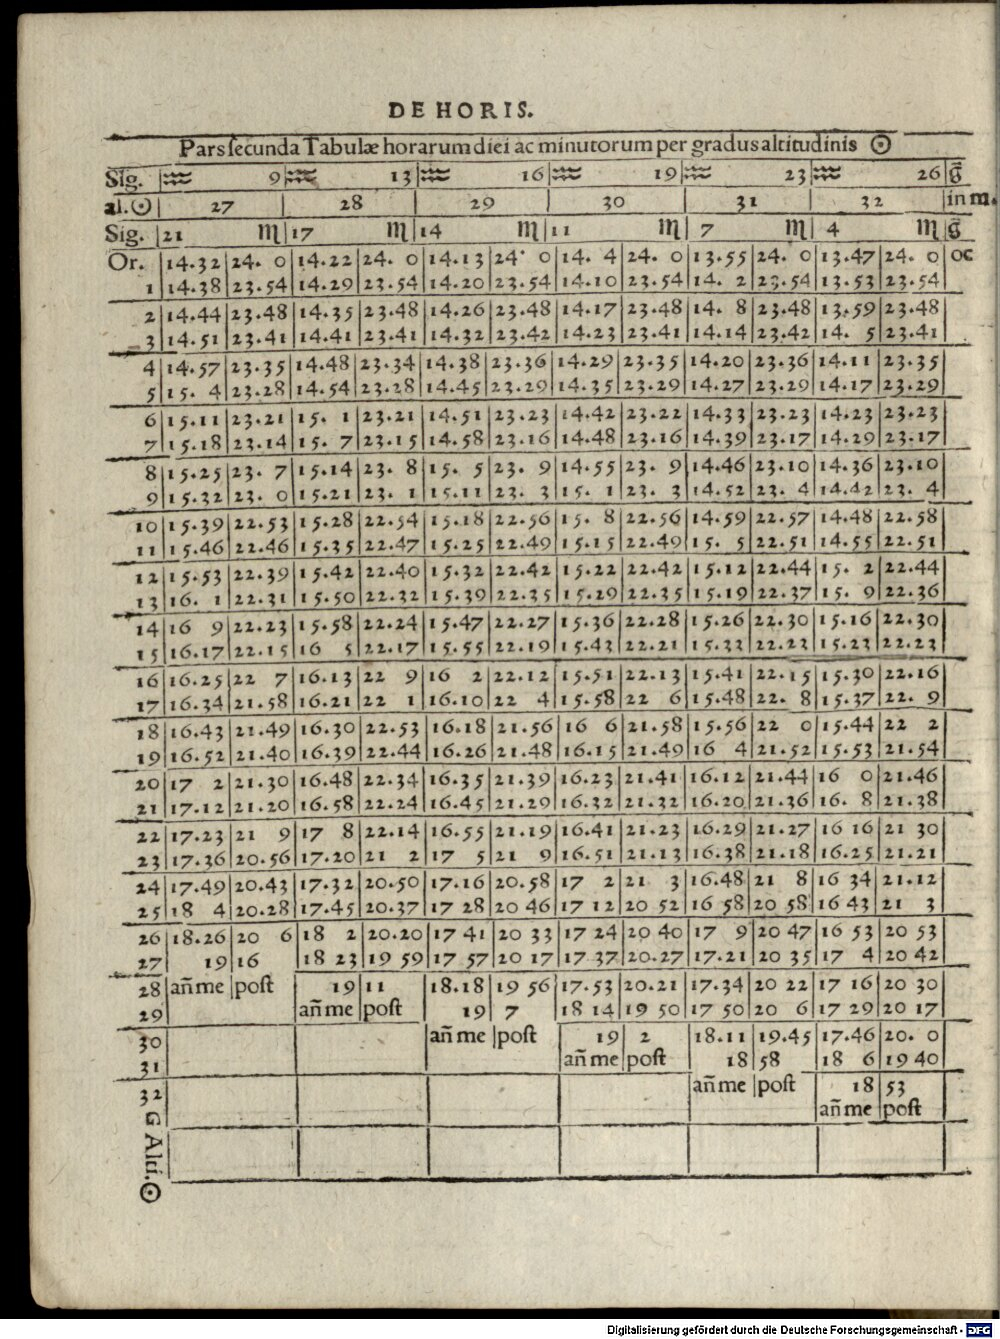 DE HORIS.
Pars secunda Tabulæ horarum diei ac minutorum per gradus altitudinis ☉
Sig. ♒ 9 ♒ 13 ♒ 16 ♒ 19 ♒ 23 ♒ 26 g̃
al.☉ 27 28 29 30 31 32 in m.
Sig. 21 ♏ 17 ♏ 14 ♏ 11 ♏ 7 ♏ 4 ♏ g̃
Or. 14.32 24. 0 14.22 24. 0 14.13 24. 0 14. 4 24. 0 13.55 24. 0 13.47 24. 0 oc
1 14.38 23.54 14.29 23.54 14.20 23.54 14.10 23.54 14. 2 23.54 13.53 23.54
2 14.44 23.48 14.35 23.48 14.26 23.48 14.17 23.48 14. 8 23.48 13.59 23.48
3 14.51 23.41 14.41 23.41 14.32 23.42 14.23 23.41 14.14 23.42 14. 5 23.41
4 14.57 23.35 14.48 23.34 14.38 23.36 14.29 23.35 14.20 23.36 14.11 23.35
5 15. 4 23.28 14.54 23.28 14.45 23.29 14.35 23.29 14.27 23.29 14.17 23.29
6 15.11 23.21 15. 1 23.21 14.51 23.23 14.42 23.22 14.33 23.23 14.23 23.23
7 15.18 23.14 15. 7 23.15 14.58 23.16 14.48 23.16 14.39 23.17 14.29 23.17
8 15.25 23. 7 15.14 23. 8 15. 5 23. 9 14.55 23. 9 14.46 23.10 14.36 23.10
9 15.32 23. 0 15.21 23. 1 15.11 23. 3 15. 1 23. 3 14.52 23. 4 14.42 23. 4
10 15.39 22.53 15.28 22.54 15.18 22.56 15. 8 22.56 14.59 22.57 14.48 22.58
11 15.46 22.46 15.35 22.47 15.25 22.49 15.15 22.49 15. 5 22.51 14.55 22.51
12 15.53 22.39 15.42 22.40 15.32 22.42 15.22 22.42 15.12 22.44 15. 2 22.44
13 16. 1 22.31 15.50 22.32 15.39 22.35 15.29 22.35 15.19 22.37 15. 9 22.36
14 16 9 22.23 15.58 22.24 15.47 22.27 15.36 22.28 15.26 22.30 15.16 22.30
15 16.17 22.15 16 5 22.17 15.55 22.19 15.43 22.21 15.33 22.23 15.23 22.23
16 16.25 22 7 16.13 22 9 16 2 22.12 15.51 22.13 15.41 22.15 15.30 22.16
17 16.34 21.58 16.21 22 1 16.10 22 4 15.58 22 6 15.48 22. 8 15.37 22. 9
18 16.43 21.49 16.30 22.53 16.18 21.56 16 6 21.58 15.56 22 0 15.44 22 2
19 16.52 21.40 16.39 22.44 16.26 21.48 16.15 21.49 16 4 21.52 15.53 21.54
20 17 2 21.30 16.48 22.34 16.35 21.39 16.23 21.41 16.12 21.44 16 0 21.46
21 17.12 21.20 16.58 22.24 16.45 21.29 16.32 21.32 16.20 21.36 16. 8 21.38
22 17.23 21 9 17 8 22.14 16.55 21.19 16.41 21.23 16.29 21.27 16 16 21 30
23 17.36 20.56 17.20 21 2 17 5 21 9 16.51 21.13 16.38 21.18 16.25 21.21
24 17.49 20.43 17.32 20.50 17.16 20.58 17 2 21 3 16.48 21 8 16 34 21.12
25 18 4 20.28 17.45 20.37 17 28 20 46 17 12 20 52 16 58 20 58 16 43 21 3
26 18.26 20 6 18 2 20.20 17 41 20 33 17 24 20 40 17 9 20 47 16 53 20 53
27 19 16 18 23 19 59 17 57 20 17 17 37 20.27 17.21 20 35 17 4 20 42
28 añ me post 19 11 18.18 19 56 17.53 20.21 17.34 20 22 17 16 20 30
29 añ me post 19 7 18 14 19 50 17 50 20 6 17 29 20 17
30 añ me post 19 2 18.11 19.45 17.46 20. 0
31 añ me post 18 58 18 6 19 40
32 añ me post 18 53
añ me post
G Alti.☉
Digitalisierung gefördert durch die Deutsche Forschungsgemeinschaft - DFG